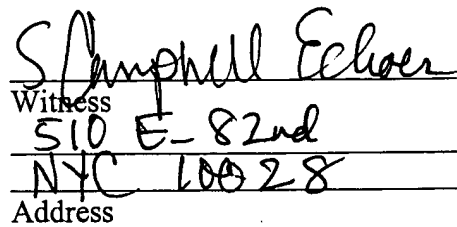 S Campbell Echoes
Witness
510 E- 82nd
NYC 10028
Address